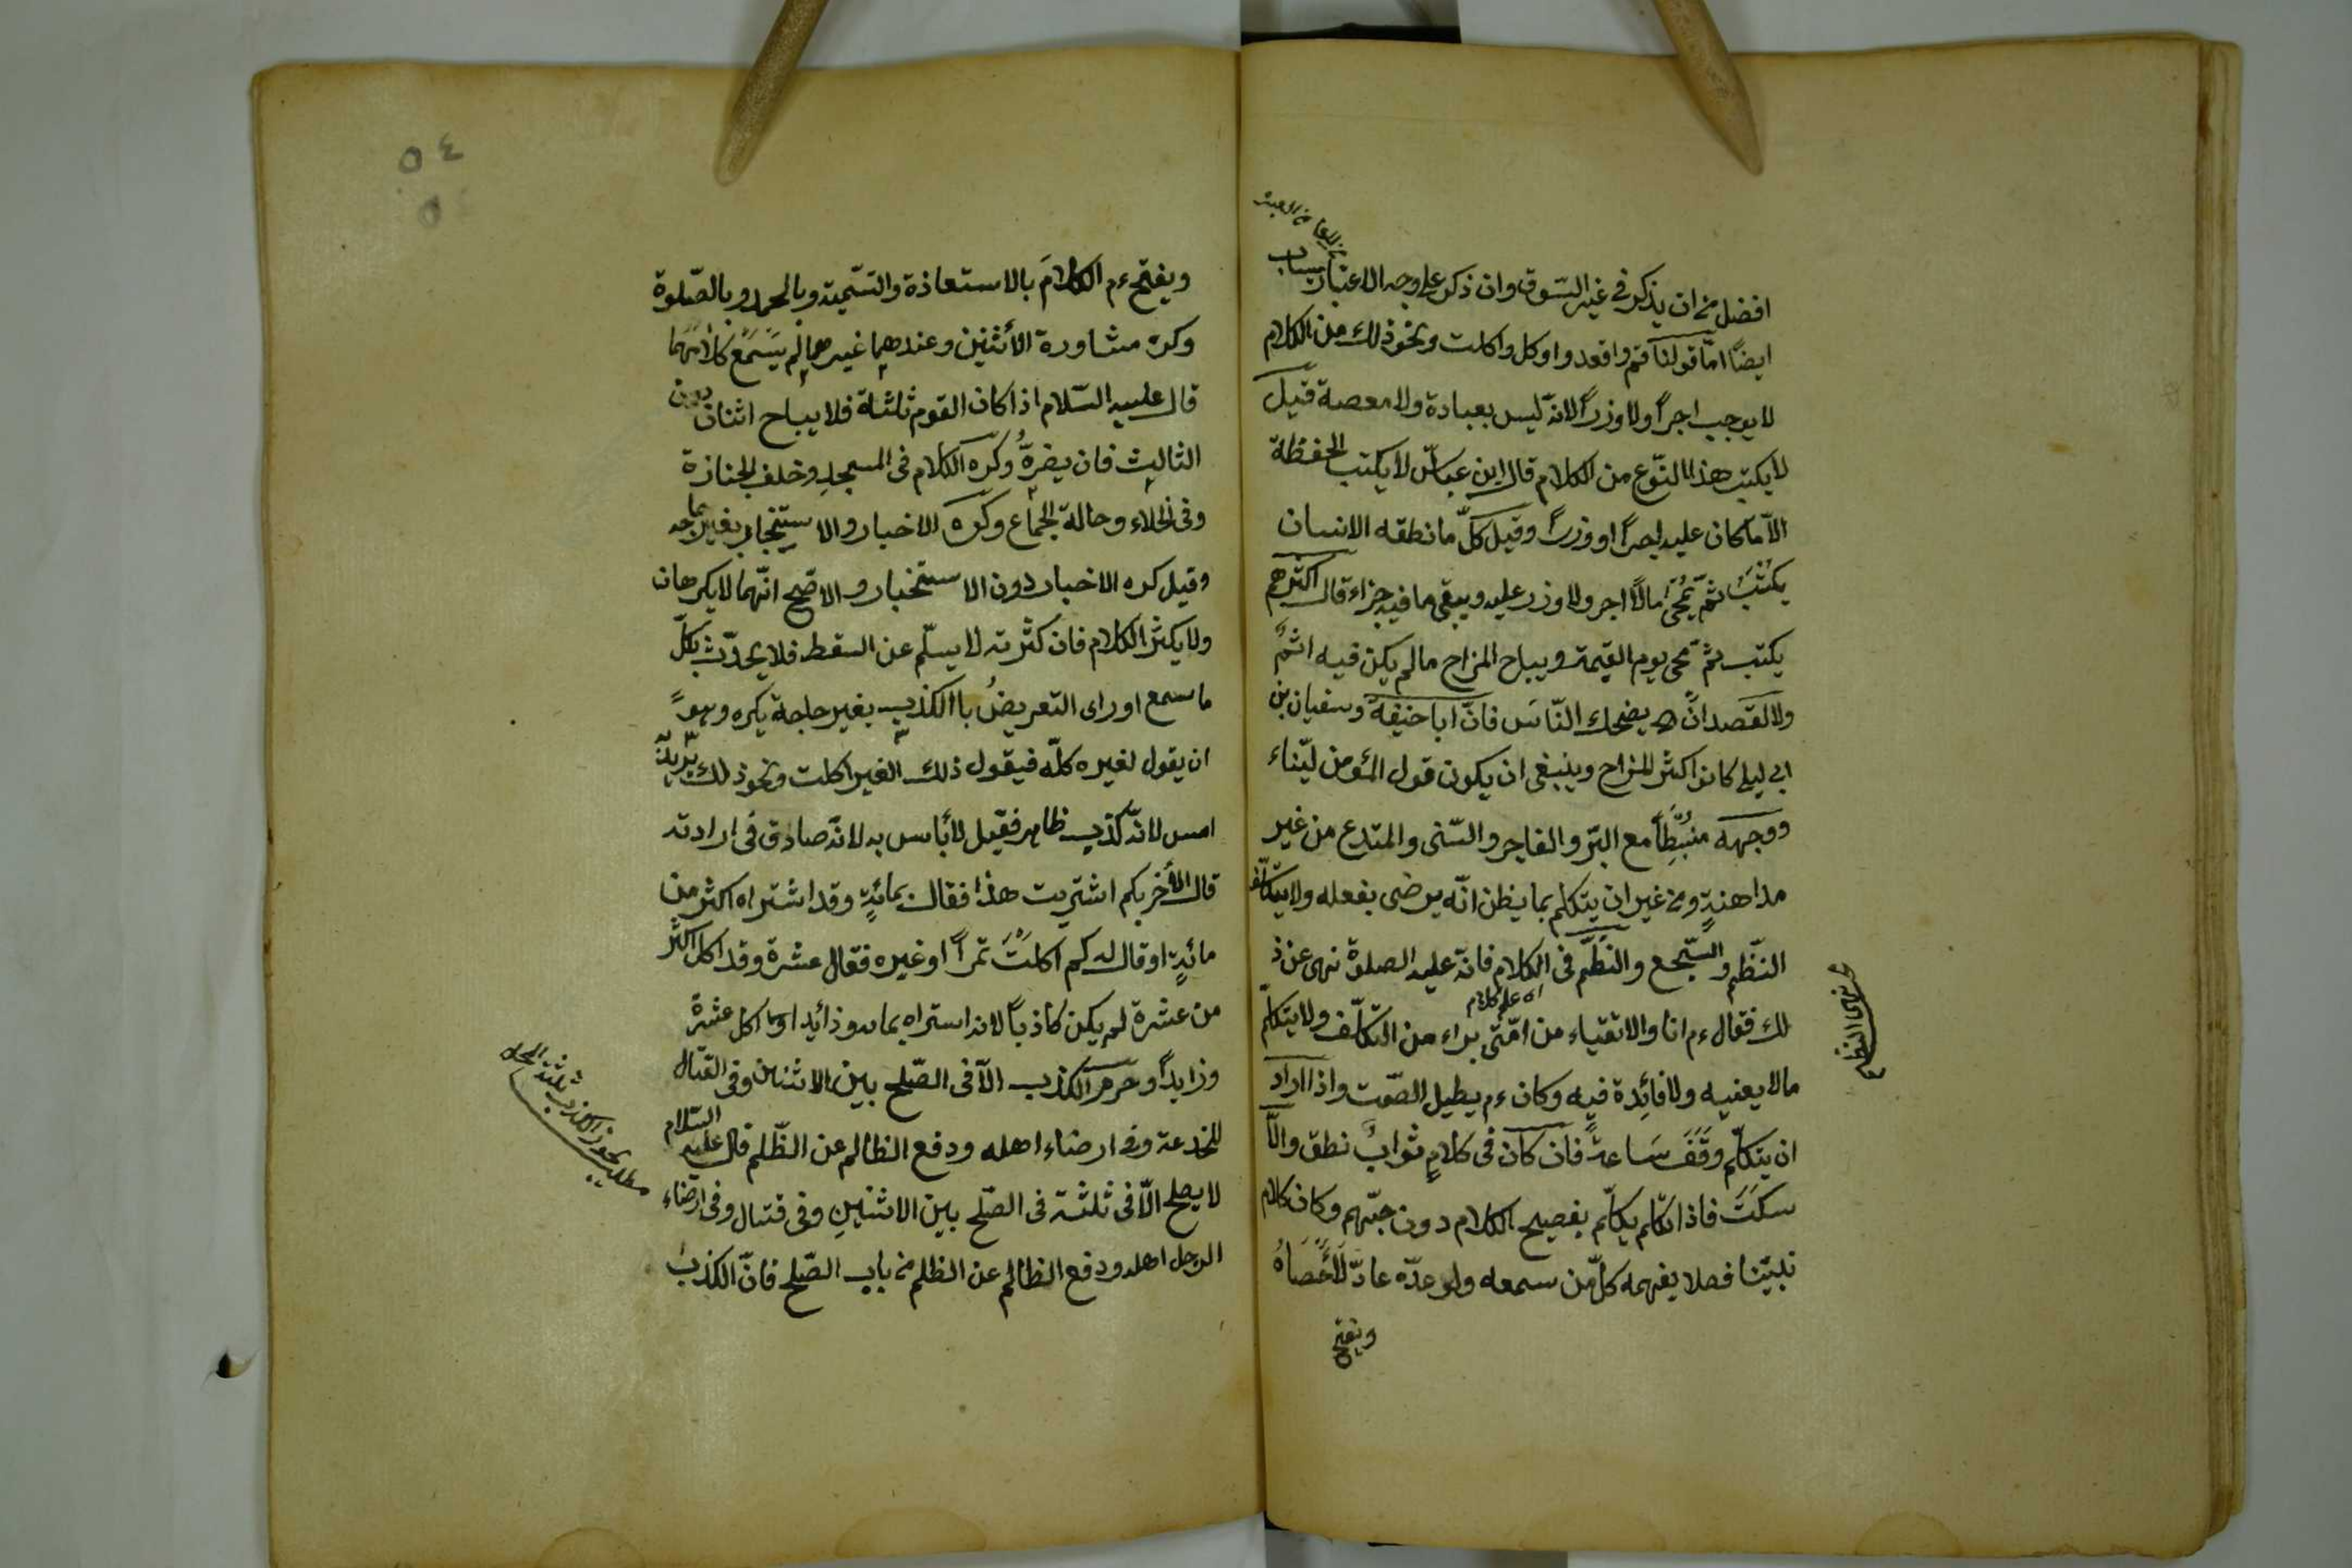 افضل من ان يذكر فى غير السّوق وان ذكر على وجه الاعتبار يثاب
ايضًا امّا قولنا قم واقعد واوكل واكلت ونحو ذلك من الكلام
لا يوجب اجراً ولا وزراً لانّه ليس بعبادة ولا معصية قيل
لا يكتب هذا النّوع من الكلام قال ابن عباسّ لا يكتب الحفظة
الاّ ما كان عليه اجراً او وزراً وقيل كلّ ما نطقه الانسان
يكتب ثمّ تمحى مالا اجر ولا وزر عليه ويبقى ما فيه جزاء قال اكثرهم
يكتب ثمّ تمحى يوم القيمة ويباح المزاح ما لم يكن فيه اثمٌ
ولا القصد ان يضحك النّاس فانّ ابا حنيفة وسفيان بن
ابى ليلى كانوا اكثر المزاح وينبغى ان يكون قول المؤمن ليّناء
ووجهه منبسّطاً مع البرّ والفاجر والسّنى والمبتدع من غير
مداهنةٍ ومن غير ان يتكلم بما يظن انّه يرضى بفعله ولا يتكلّف
النّظم والسّجع والنظّم فى الكلام فانّه عليه الصلوة نهى عن ذ
لك فقال ءم انا والاتقياء من امّتى براء من التكلّف ولا يتكلّم
مالا يعنيه ولا فائدة فيه وكان ءم يطيل الصّمت واذا اراد
ان يتكلّم وقف ساعة فان كان فى كلامٍ ثوابٌ نطق والاّ
سكت فاذا تكلم يكلّم بفصيح الكلام دون وكان كلام
نبيّنا فصلا يفهمه كلّ من سمعه ولو عدّه عادّ لأحصاه
ويفتح
نهى النظم
ويفتح ءم الكلامَ بالاستعاذة والتسّمية وبالحمد وبالصّلوة
وكره مشاورة الأثنين وعندهما غيرهما لم يسمع كلامهما
قال عليه السّلام اذا كان القوم ثلثة فلا يباح اثنان دون
الثالث فان يضرهُّ وكره الكلام فى المسجد وخلف الجنازة
وفى الخلاء وحالة الجماع وكره الاخبار والاستخبار بغير حاجه
وقيل كره الاخبار دون الاستخبار والاصّح انّهما لا يكرهان
ولا يكثر الكلام فان كثرته لا يسلّم عن السقط فلا يحدّث بكلّ
ما سمع او راى التعريضُ باالكذب بغير حاجة يكره وهو
ان يقول لغيره كله فيقول ذلك الغير اكلت ونحو ذلك يريد
امس لانّه كذب ظاهر فقيل لأباس به لانّه صادق فى ارادته
قال لأخر بكم اشتريت هذا فقال بمائةٍ وقد اشتراه اكثر من
مائةٍ او قال له كم اكلتَ تمراً او غيره فقال عشرة وقد اكل اكثر
من عشرة لم يكن كاذباً لانه اشتراه بمائه وزائدا وما اكل عشرة
وزايداً وحرم الكذب الاّ فى الصّلح بين الاثنين وفى القتال
للخدعة وفى ارضاء اهله ودفع الظالم عن الظّلم قال عليه السّلام
لا يصلح الاّ فى ثلثة فى الصّلح بين الاثنينِ وفى قتال وفى ارضاء
الرجل اهله ودفع الظالم عن الظلم من باب الصّلح فانّ الكذب
مطلب يجوز الكذب ثلثة
٥٤